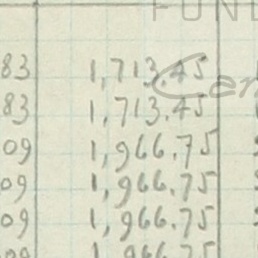 FUND
83 1,713.45
83 1,713.45
09 1,966.75
09 1,966.75
09 1,966.75
09 1,966.75